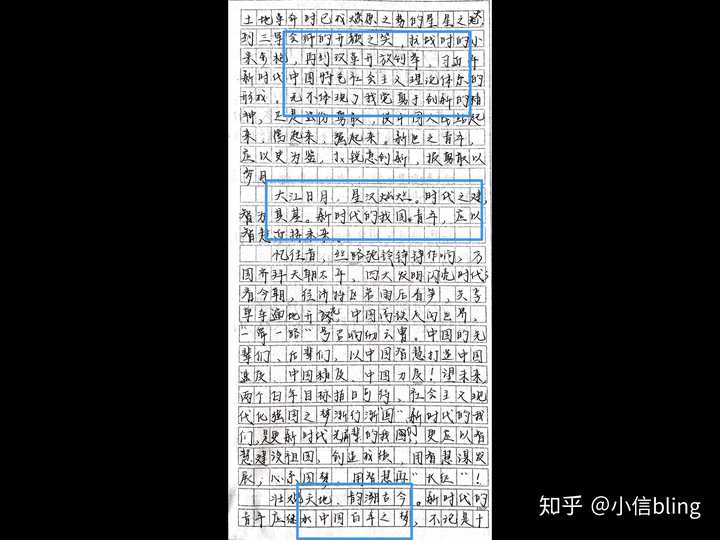 土地革命时已成燎原之势的星星之火,
到三军会师的开颜之笑,抗战时的小
米步枪,再到改革开放创举,习近平
新时代中国特色社会主义理论体系的
形成。无不体现了我党勇于创新的精
神,正是这份勇敢,使中国人民站起
来,富起来,强起来。新时代之青年,
应以史为鉴,以锐意创新,报
岁月
大江日月,星汉灿烂。时代之进,
智为其基。新时代的我国青年,应以
智慧直挂未来。
忆往昔,丝路驼铃铮铮作响,万
国齐拜天朝太平,四大发明闪亮时代;
看今朝,经济特区若雨后春笋,共享
单车遍地开花,中国高铁人闪世界,
“一带一路”号召响彻云霄。中国的先
辈们、后辈们,以中国智慧打造中国
速度、中国精度、中国力度!望未来,
两个百年目标指日可待,社会主义现
代化强国之梦渐行渐圆。新时代的我
们,是更新时代先辈的我们!更应以智
慧建设祖国,创造我梦,用智慧谋发
展,心系国梦,用智慧再“长征”!
壮观天地,韵溯古今。新时代的
青年应继承中国百年之势,不论是十
知乎 @小信bling